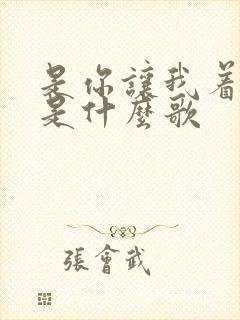 是你讓我着
是什麼歌
張會武